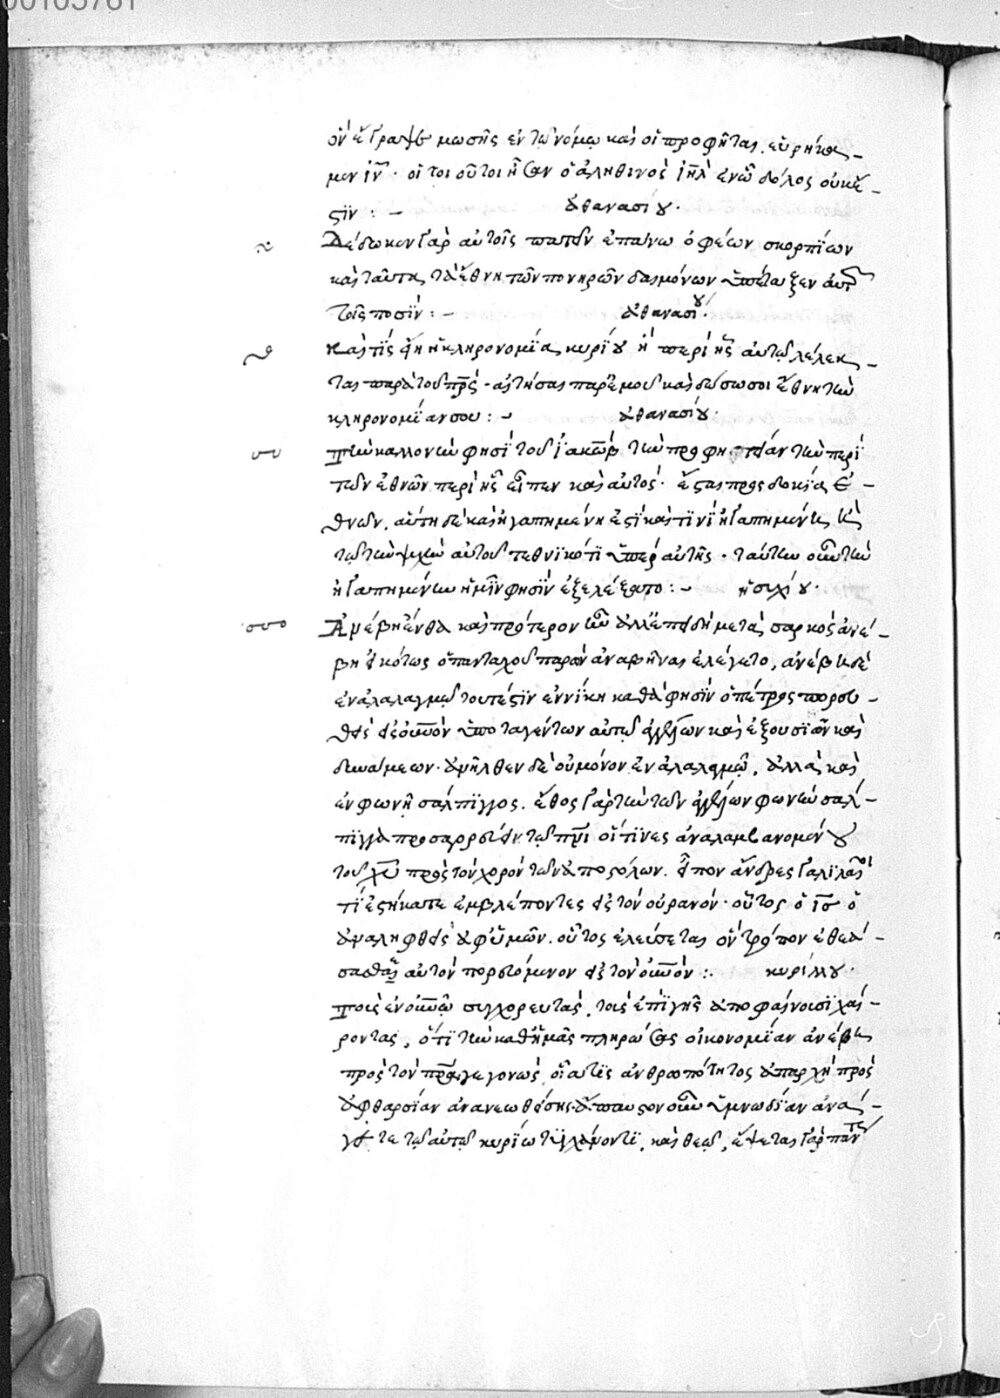 00105781
ὃν ἔγραψε μωσῆς ἐν τῷ νόμῳ καὶ οἱ προφῆται, εὑρήκα-
μεν ἰν̅. οἱ τοιοῦτοι ἦσαν ὁ ἀληθινὸς ἰη̅λ ἐν ᾧ δόλος οὐκ ἔ-
στϊν : – ἀθανασίου.
Δέδωκεν γὰρ αὐτοῖς πατεῖν ἐπάνω ὀφέων σκορπΐων
καὶ ταῦτα, τὰ ἔθνη τῶν πονηρῶν δαιμόνων ὑπέταξεν αὐτ
τοῖς ποσΐν : – ἀθανασίου.
Καὶ τίς ἡ κληρονομΐα κυρίου ἢ περὶ ἧς αὐτῷ λέλεκ-
ται παρὰ τοῦ πρ̅ς. αἴτησαι παρ' ἐμοῦ καὶ δώσω σοι ἔθνη τὴν
κληρονομΐαν σου : – ἀθανασίου.
Τὴν καλλονὴν φησὶ τοῦ ἰακὼβ τὴν προφητείαν τὴν περὶ
τῶν ἐθνῶν περὶ ἧς εἶπεν καὶ αὐτός. ἔσται προσδοκία ἐ-
θνῶν. αὕτη δὲ καὶ ἠγαπημένη ἐστὶ καὶ τίνι ἠγαπημένη
τῷ τὴν ψυχὴν αὐτοῦ τεθνϊκότι ὑπὲρ αὐτῆς. ταύτην οὖν τὴν
ἠγαπημένην ἡμῖν φησΐν ἐξελέξατο : – ἡσυχίου.
Ἀνέβη ἔνθα καὶ πρότερον ἦν ἀλλ' ἐπειδὴ μετὰ σαρκὸς ἀνέ-
βη εἰκότως ὁ πανταχοῦ παρὼν ἀναβῆναι ἐλέγετο, ἀνέβη δὲ
ἐν ἀλαλαγμῷ τουτέστιν ἐν νίκη καθά φησϊν ὁ πέτρος πορευ-
θεὶς εἰς οὐνὸν ὑποταγέντων αὐτῷ ἀγγέλων καὶ ἐξουσϊῶν καὶ
δυνάμεων. ἀνῆλθεν δὲ οὐ μόνον ἐν ἀλαλαγμῷ, ἀλλὰ καὶ
ἐν φωνῆ σάλπϊγγος. ἔθος γὰρ τὴν τῶν ἀγγέλων φωνὴν σάλ-
πϊγγα προσαγορεύειν τῷ πνι οἵτϊνες ἀναλαμβανομένου
τοῦ χυ πρὸς τὸν χορὸν τῶν ἀποστόλων. εἶπον ἄνδρες γαλϊλαῖοι
τί ἑστήκατε ἐμβλέποντες εἰς τὸν οὐρανόν. οὗτος ὁ ις ὁ
ἀναληφθεὶς ἀφ' ὑμῶν. οὗτος ἐλεύσεται ὃν τρόπον ἐθεά-
σασθε αὐτὸν πορευόμενον εἰς τὸν οὐνόν :. κυρίλλου.
Τοῖς ἐν οὐνῷ συγχορευταὶ, τοῖς ἐπὶ γῆς ἀποφαίνουσι χαί-
ροντας, ὅτϊ τὴν καθ' ἡμᾶς πληρώσας οἰκονομΐαν ἀνέβη
πρὸς τὸν πρα γεγονὼς, οἷά τις ἀνθρωπότητος ἀπαρχὴ πρὸς
ἀφθαρσΐαν ἀνανεωθείσης. ἄπαυστον οὖν ὑμνωδΐαν ἀνά-
γετε τῷ αὐτῷ κυρίω τε καὶ θεῷ, ἕψεται γὰρ πάντες